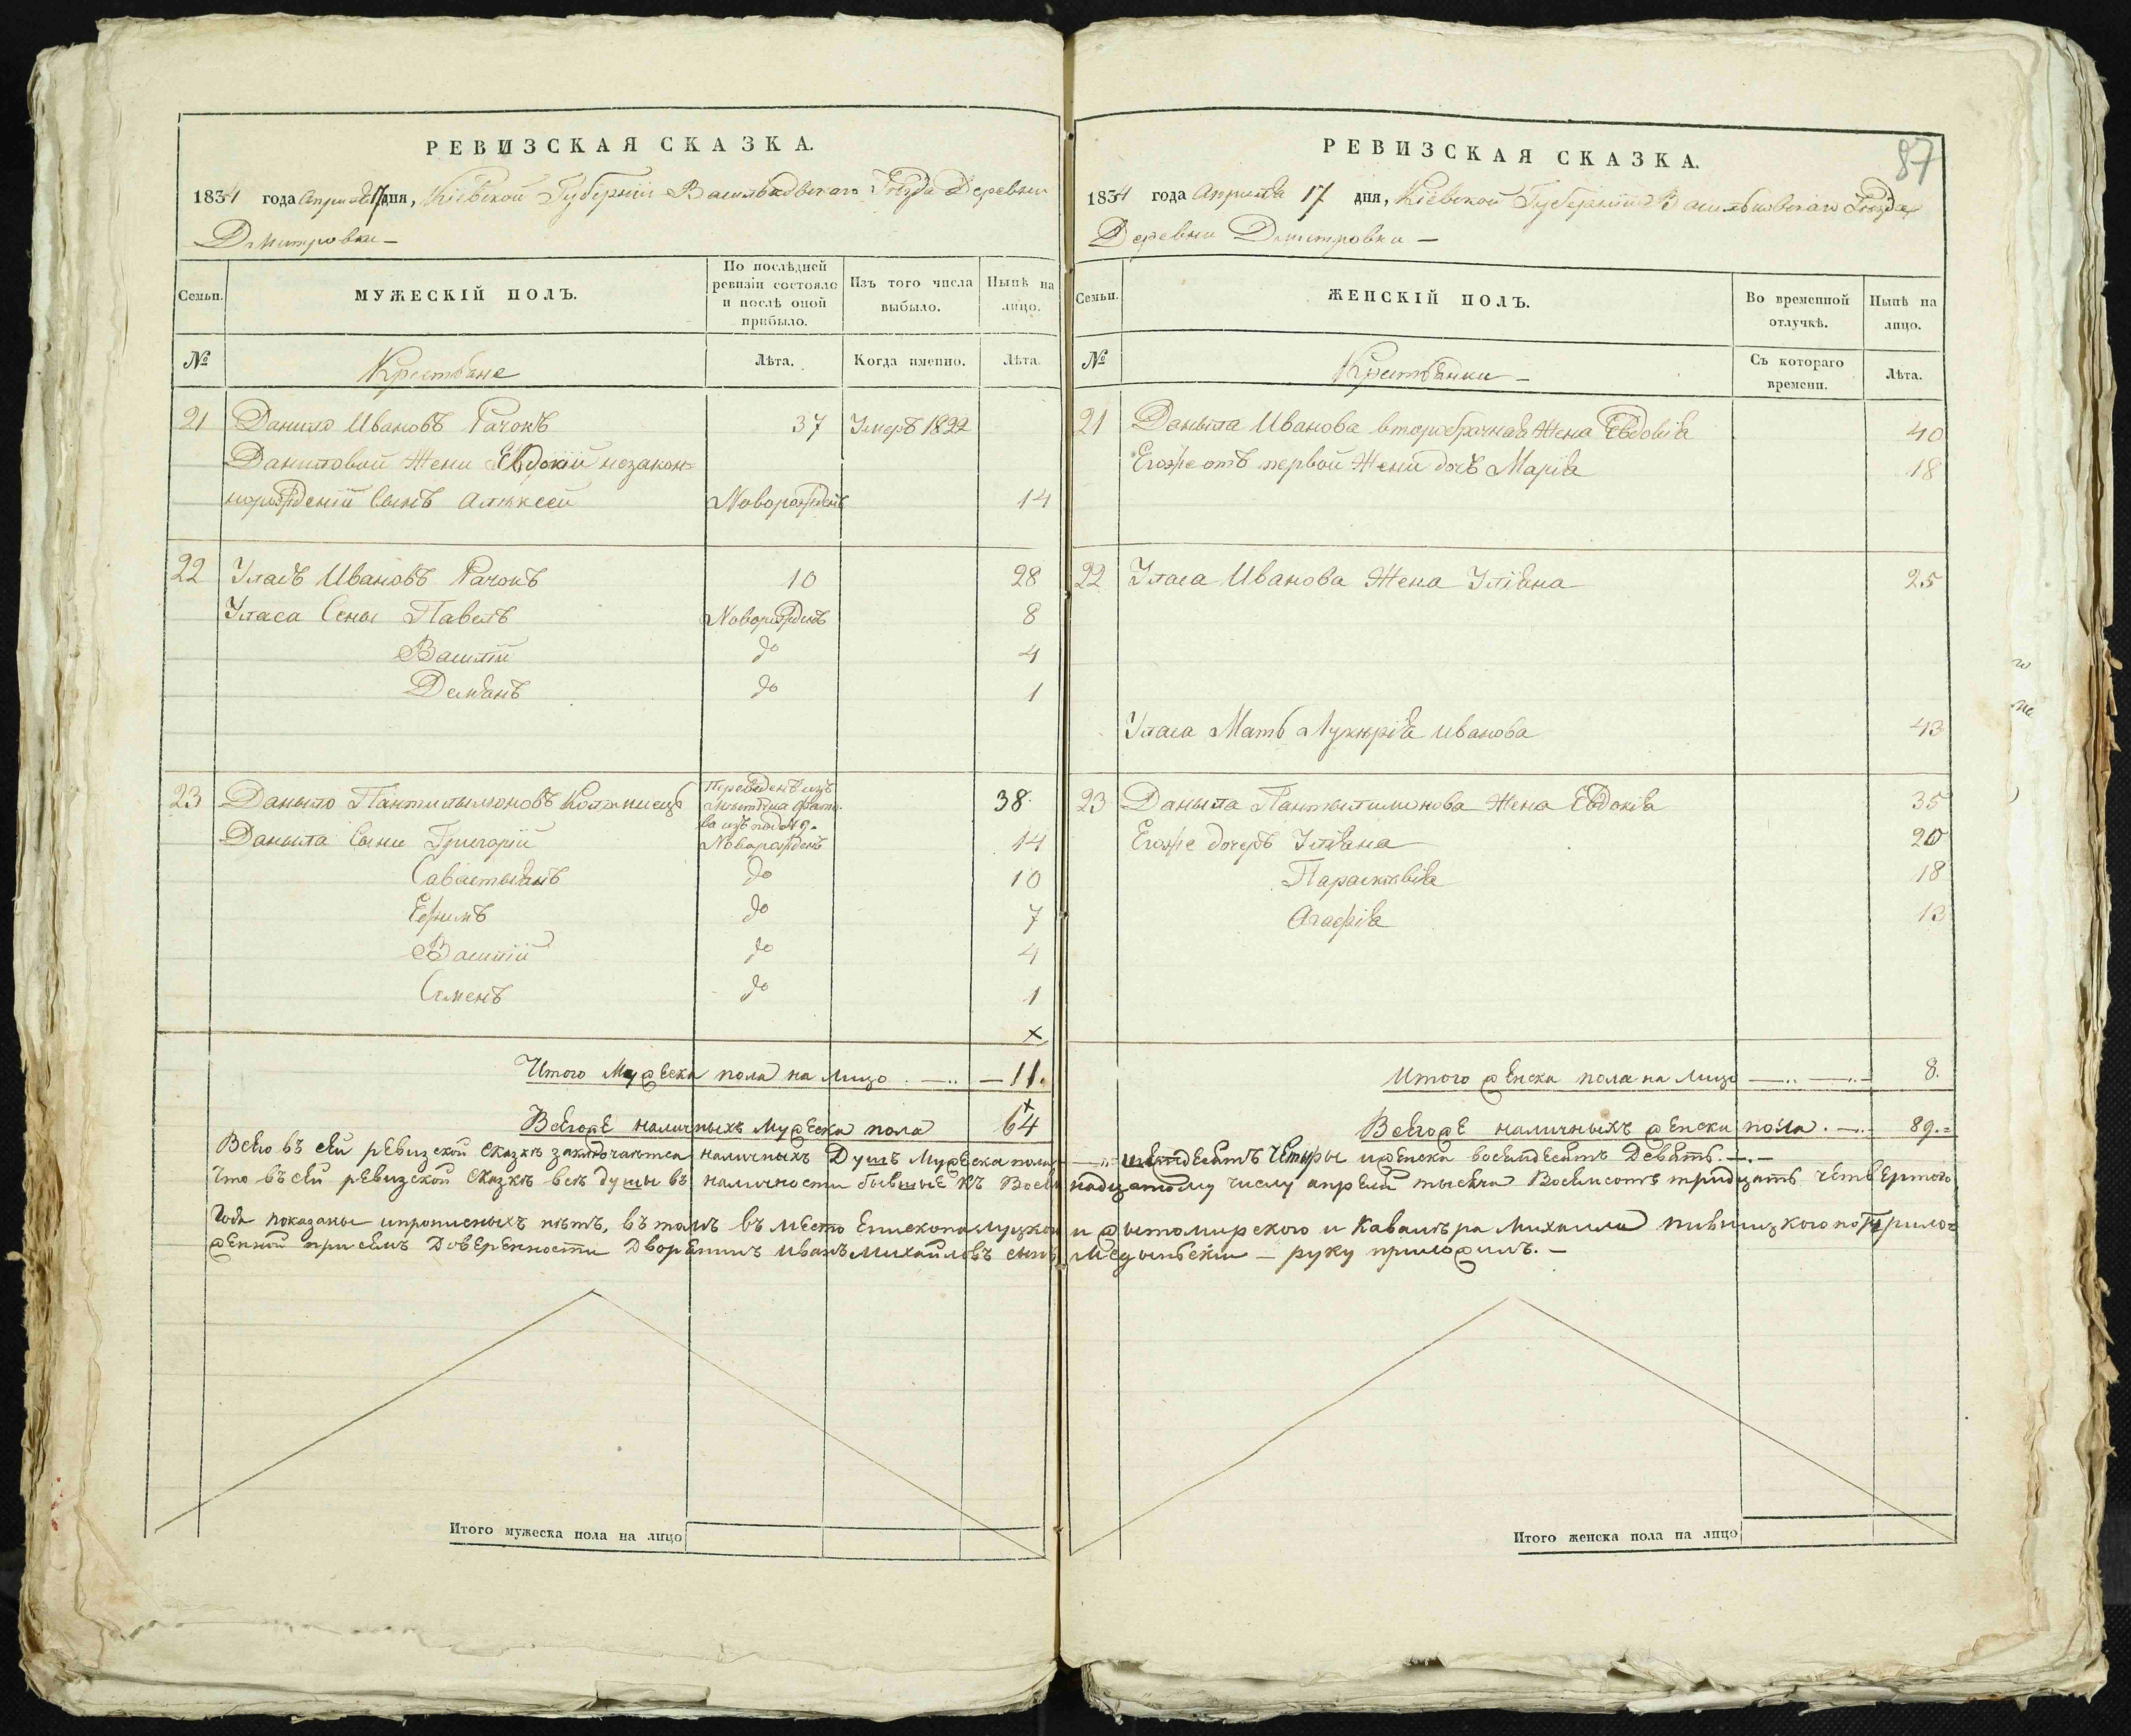 РЕВИЗСКАЯ СКАЗКА.
1834 года Априля 17 дня, Кіевской Губерніи Васильковскаго Уѣзда Деревни
Дмитровки —
Семьи.
МУЖЕСКІЙ ПОЛЪ.
По послѣдней
ревизіи состояло
и послѣ оной
прибыло.
Изъ того числа
выбыло.
Нынѣ на
лицо.
№
Крестьяне
Лѣта.
Когда именно.
Лѣта.
21 Данило Ивановъ Рачокъ 37 Умеръ 1822
Даниловой Жени Евдокіи незакон=
норожденій сынъ Алѣксей Новорожденъ 14
22 Уласъ Ивановъ Рачокъ 10 28
Уласа Сены Павелъ Новорожденъ 8
Василій до 4
Демянъ до 1
23 Даныло Пантилымоновъ Коломиецъ Переведенъ изъ 38.
изъ под № 9.
Даныла сыни Григорій Новорожденъ 14
Савастыянъ до 10
Ефимъ до 7
Василій до 4
Семенъ до 1
×
Итого Мужеска пола на лицо — 11.
×
Всегоже наличныхъ мужеска пола 64
РЕВИЗСКАЯ СКАЗКА.
87
1834 года Априля 17 дня, Кіевской Губерніи Васильковскаго Уѣзда
Деревни Дмитровки —
Семьи.
ЖЕНСКІЙ ПОЛЪ.
Во временной
отлучкѣ.
Нынѣ на
лицо.
№
Крестьянки —
Съ котораго
времени.
Лѣта.
21 Даныла Иванова второбрачная Жена Евдокія 40
Егоже отъ первой Жени дочь Марія 18
22 Уласа Иванова Жена Уліяна 25
Уласа Мать Лукерія Иванова 43
23 Даныла Пантылимонова Жена Евдокія 35
Егоже дочерѣ Уліяна 20
Параскевія 18
Агафія 13
Итого женска пола на лицо 8.
Всегоже наличныхъ женска пола 89.=
Всего въ сей ревизской сказкѣ заключается наличныхъ Душъ Мужеска пола шестдесятъ Четыры и женска восемдесятъ Девять. —
Что въ сей ревизской сказкѣ всѣ душы въ наличности бывшые къ Восемнадцатому числу апреля тысяча Восемсотъ тридцать четвертого
Года показаны и прописныхъ нѣтъ, въ томъ въ место Епископа Луцкого и житомирского и Кавалѣра Михаила Пивницкого по Прило=
женной при семъ Доверенности Дворянинъ Иванъ Михайловъ сынъ руку приложилъ. —
Итого мужеска пола на лицо
Итого женска пола на лицо